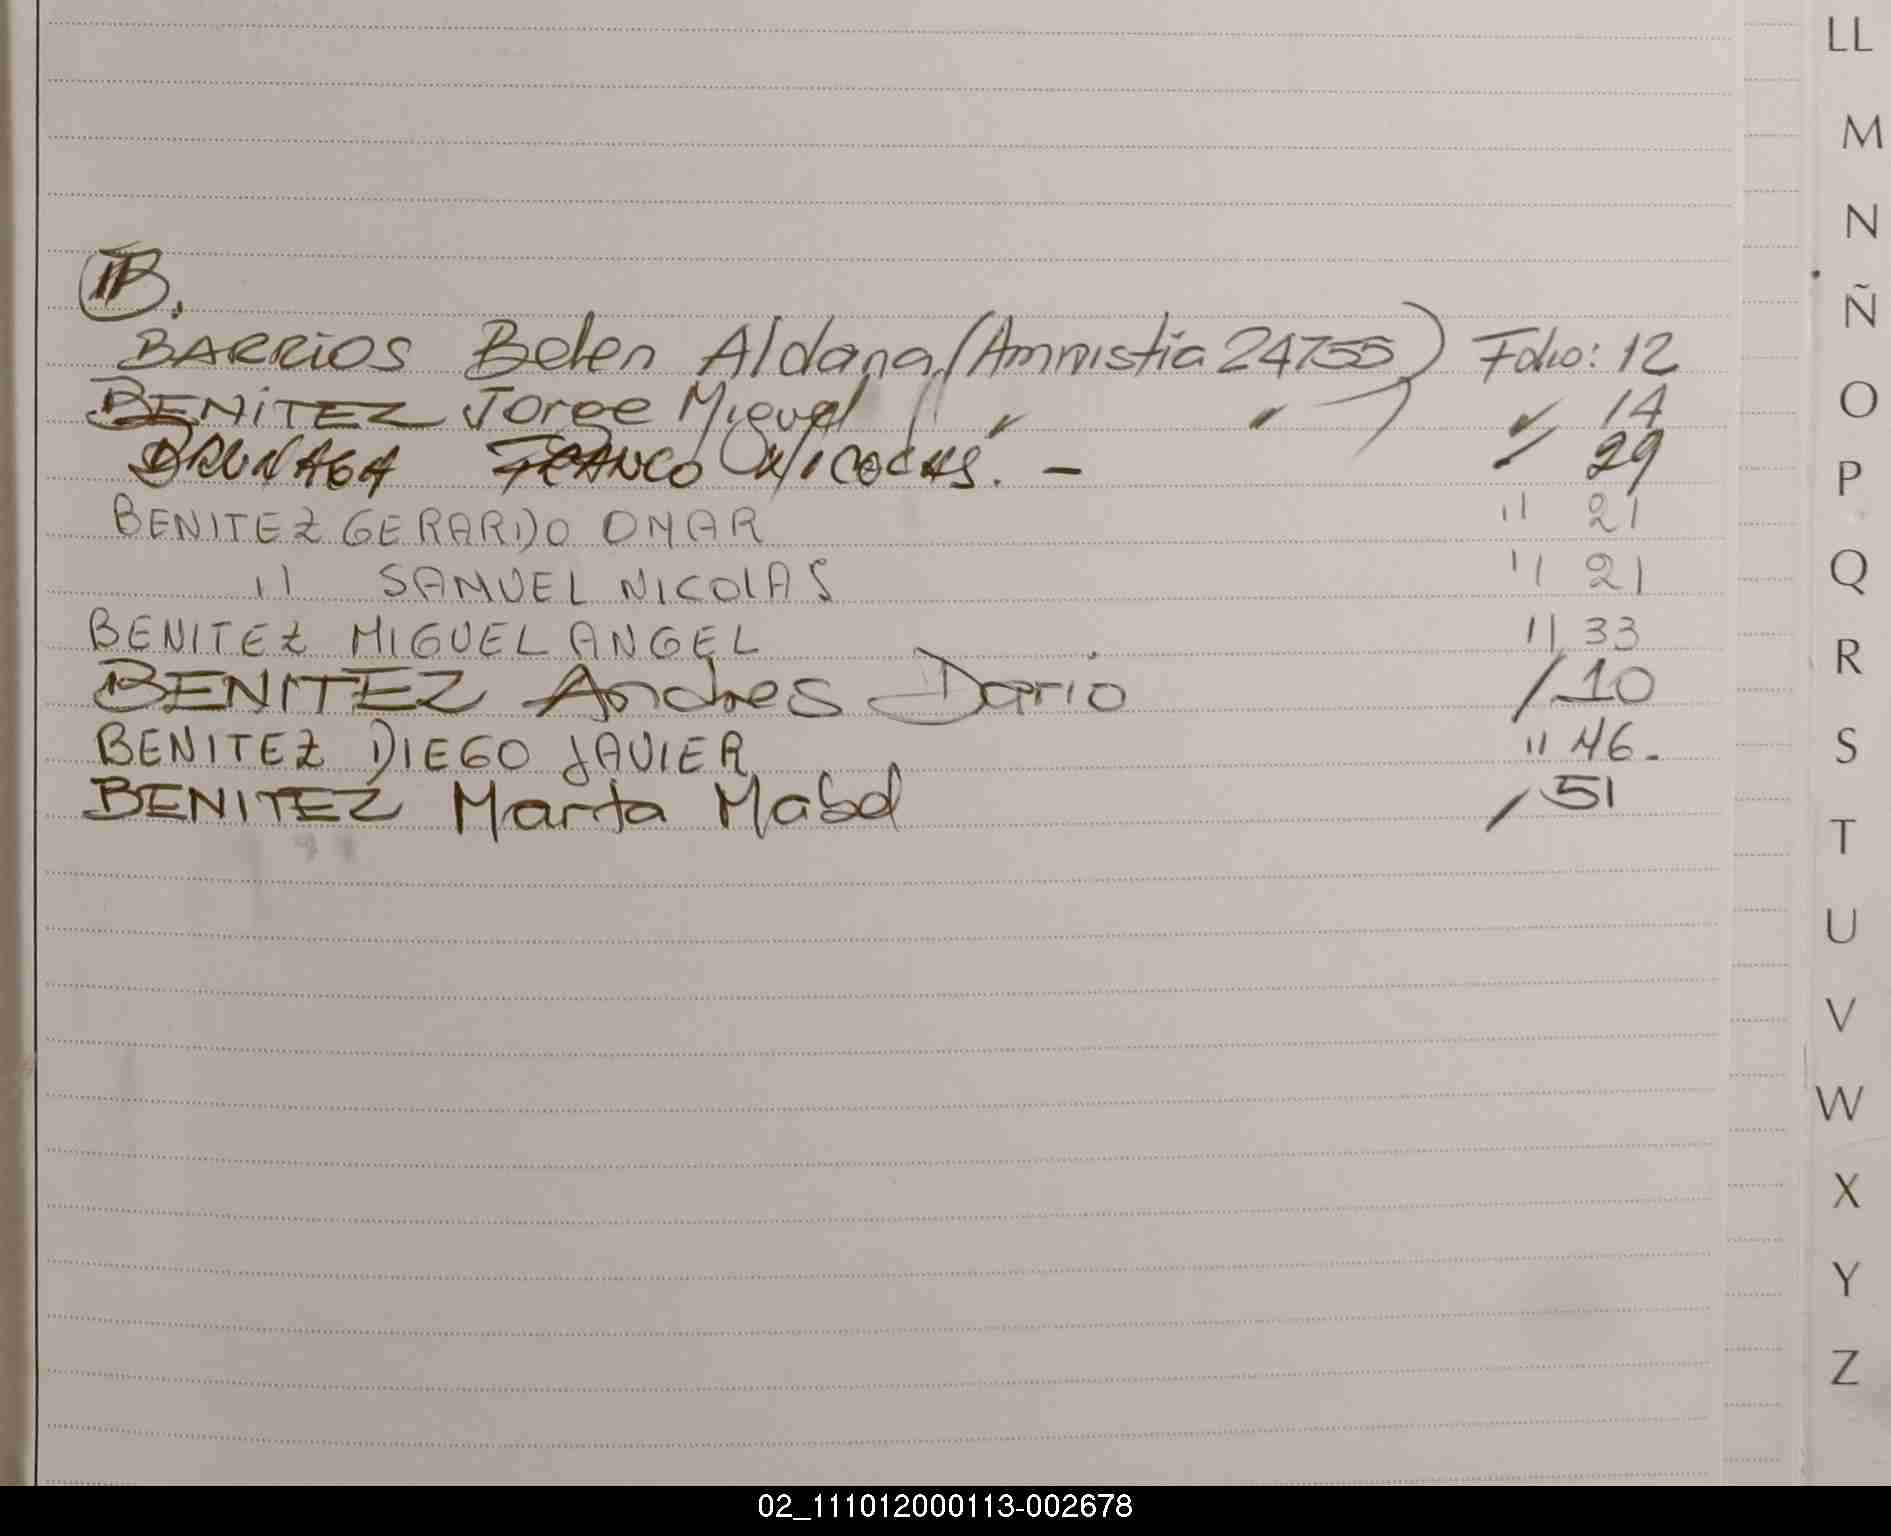 B.
BARRIOS Belen Aldana (Amnistia 24755) Folio: 12
BENITEZ Jorge Miguel ( " " ) " 14
BRUNAGA FRANCO NICOLAS. - " 29
BENITEZ GERARDO OMAR " 21
" SAMUEL NICOLAS " 21
BENITEZ MIGUEL ANGEL " 33
BENITEZ Andres Dario / 10
BENITEZ DIEGO JAVIER " 46.
BENITEZ Marta Mabel / 51
LL
M
N
Ñ
O
P
Q
R
S
T
U
V
W
X
Y
Z
02_111012000113-002678